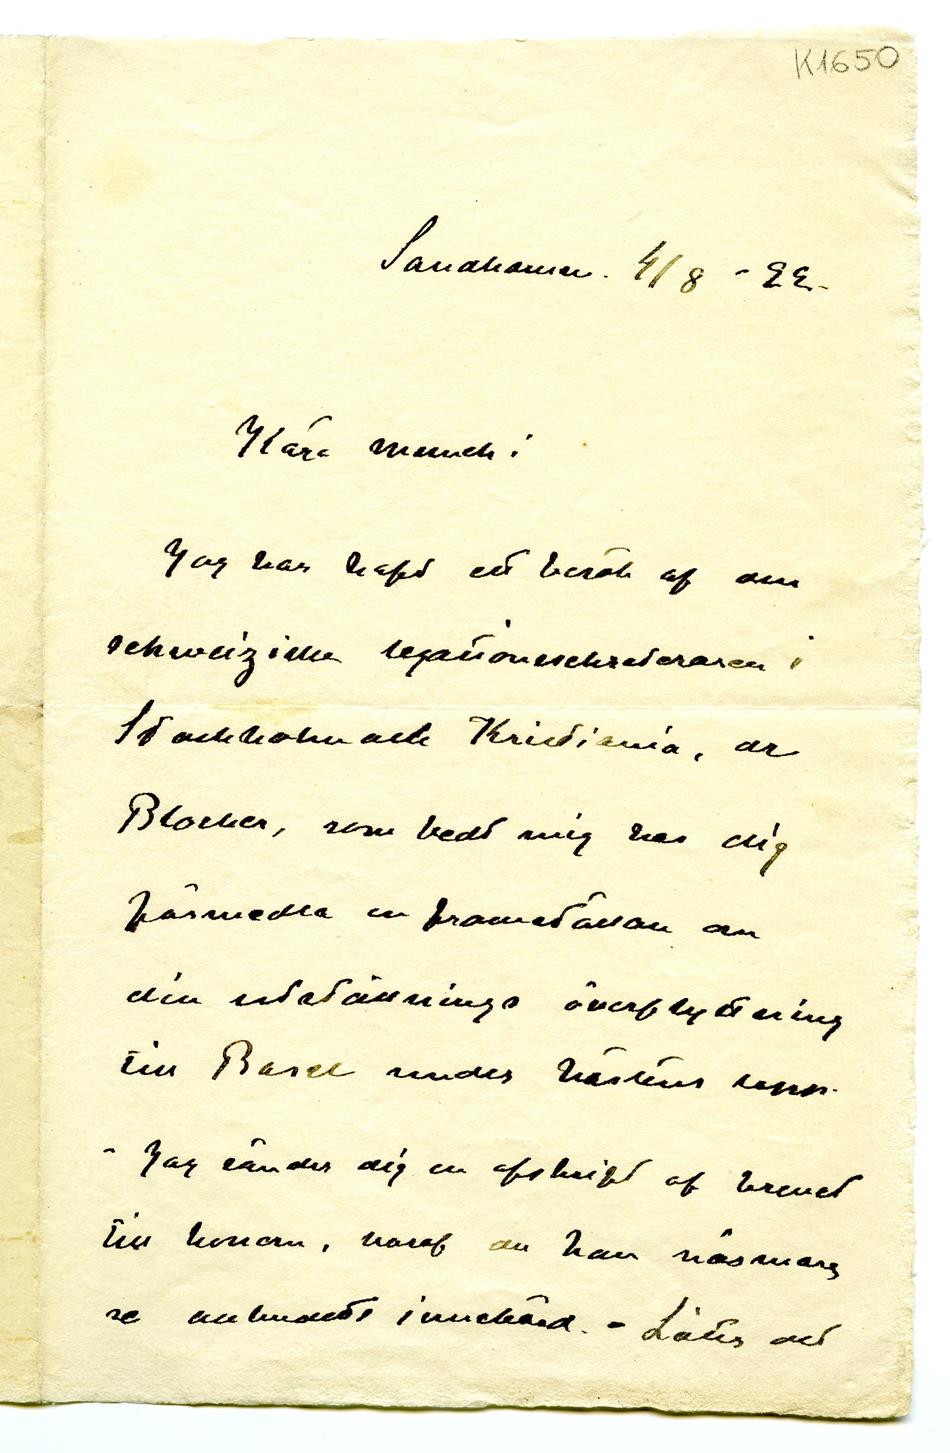 K1650
Sandhamn. 4/8 - 22.
Kära Munch!
Jag har haft ett besök af den
schweiziska legationssekreteraren i
Stockholm och Kristiania, dr
Blocher, som bedt mig hos dig
förmedla en framställan om
din utställnings överflyttning
till Basel under höstens lopp.
- Jag sänder dig en afskrift af brevet
till honom, varaf du kan närmare
se ankudets innehåll. - Låter det